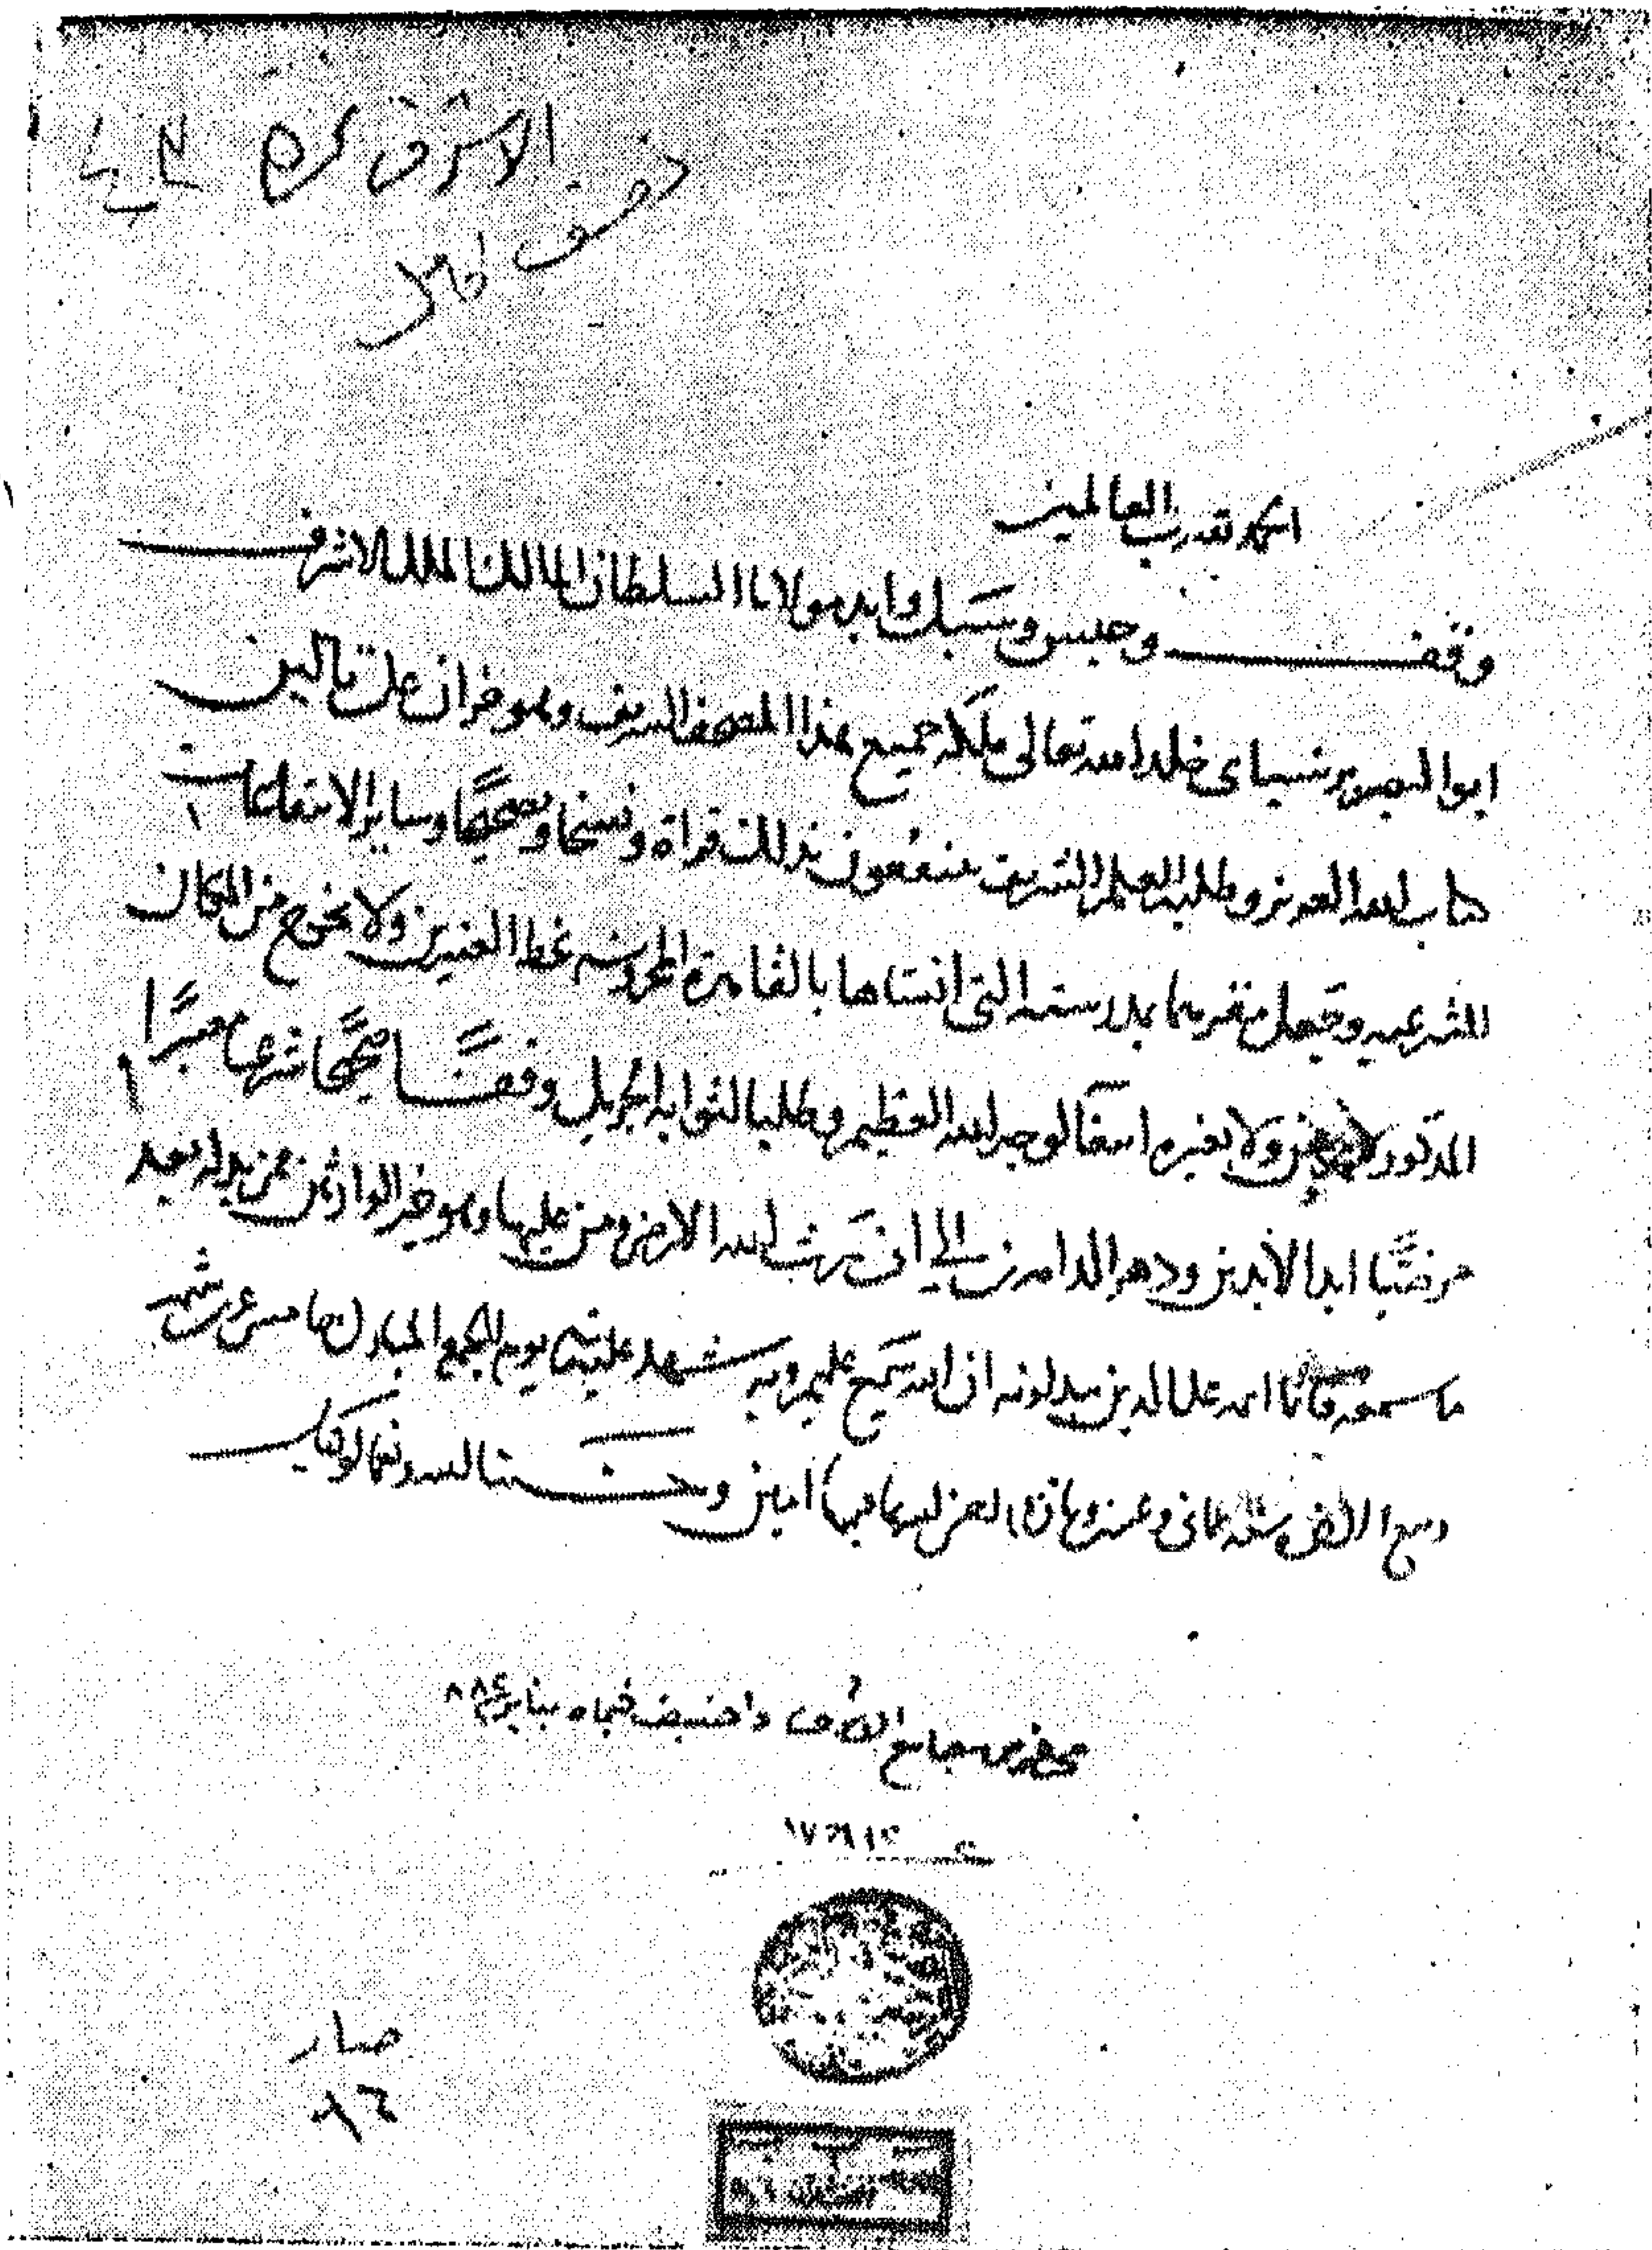 الاشرق
نصف اول
الحمد لله رب العالمين
وقف وحبس وسبل وابد مولانا السلطان المالك الملك الاشرف
ابو النصر برسباي خلد الله تعالى ملكه جميع هذا المصحف الشريف وهو قران على تالين
كتاب الله العزيز وطلبة العلم الشريف ينتفعون بذلك قراة ونسخا وتصحيحا وساير الانتفاعات
الشرعيه وجعل مقرها بمدرسته التي انشاها بالقاهرة المحروسه بخط العنبريين ولا يخرج من المكان
المذكور لا برهن ولا بغيره ابتغا لوجه الله العظيم وطلبا لثوابه الجزيل وقفا صحيحا شرعيا معتبرا
مرضيا ابد الابدين ودهر الداهرين الى ان يرث الله الارض ومن عليها وهو خير الوارثين فمن بدله بعد
ما سمعه فانما اثمه على الذين يبدلونه ان الله سميع عليم وبه شهد عليه في يوم الجمع المبارك خامس عشر شهر
ربيع الاخر سنة ثماني وعشرين وثمانمايه امين وحسبنا الله ونعم الوكيل
محضر من جامع الاشرف واضيف في يناير ٨٨٤
صار
٩٦